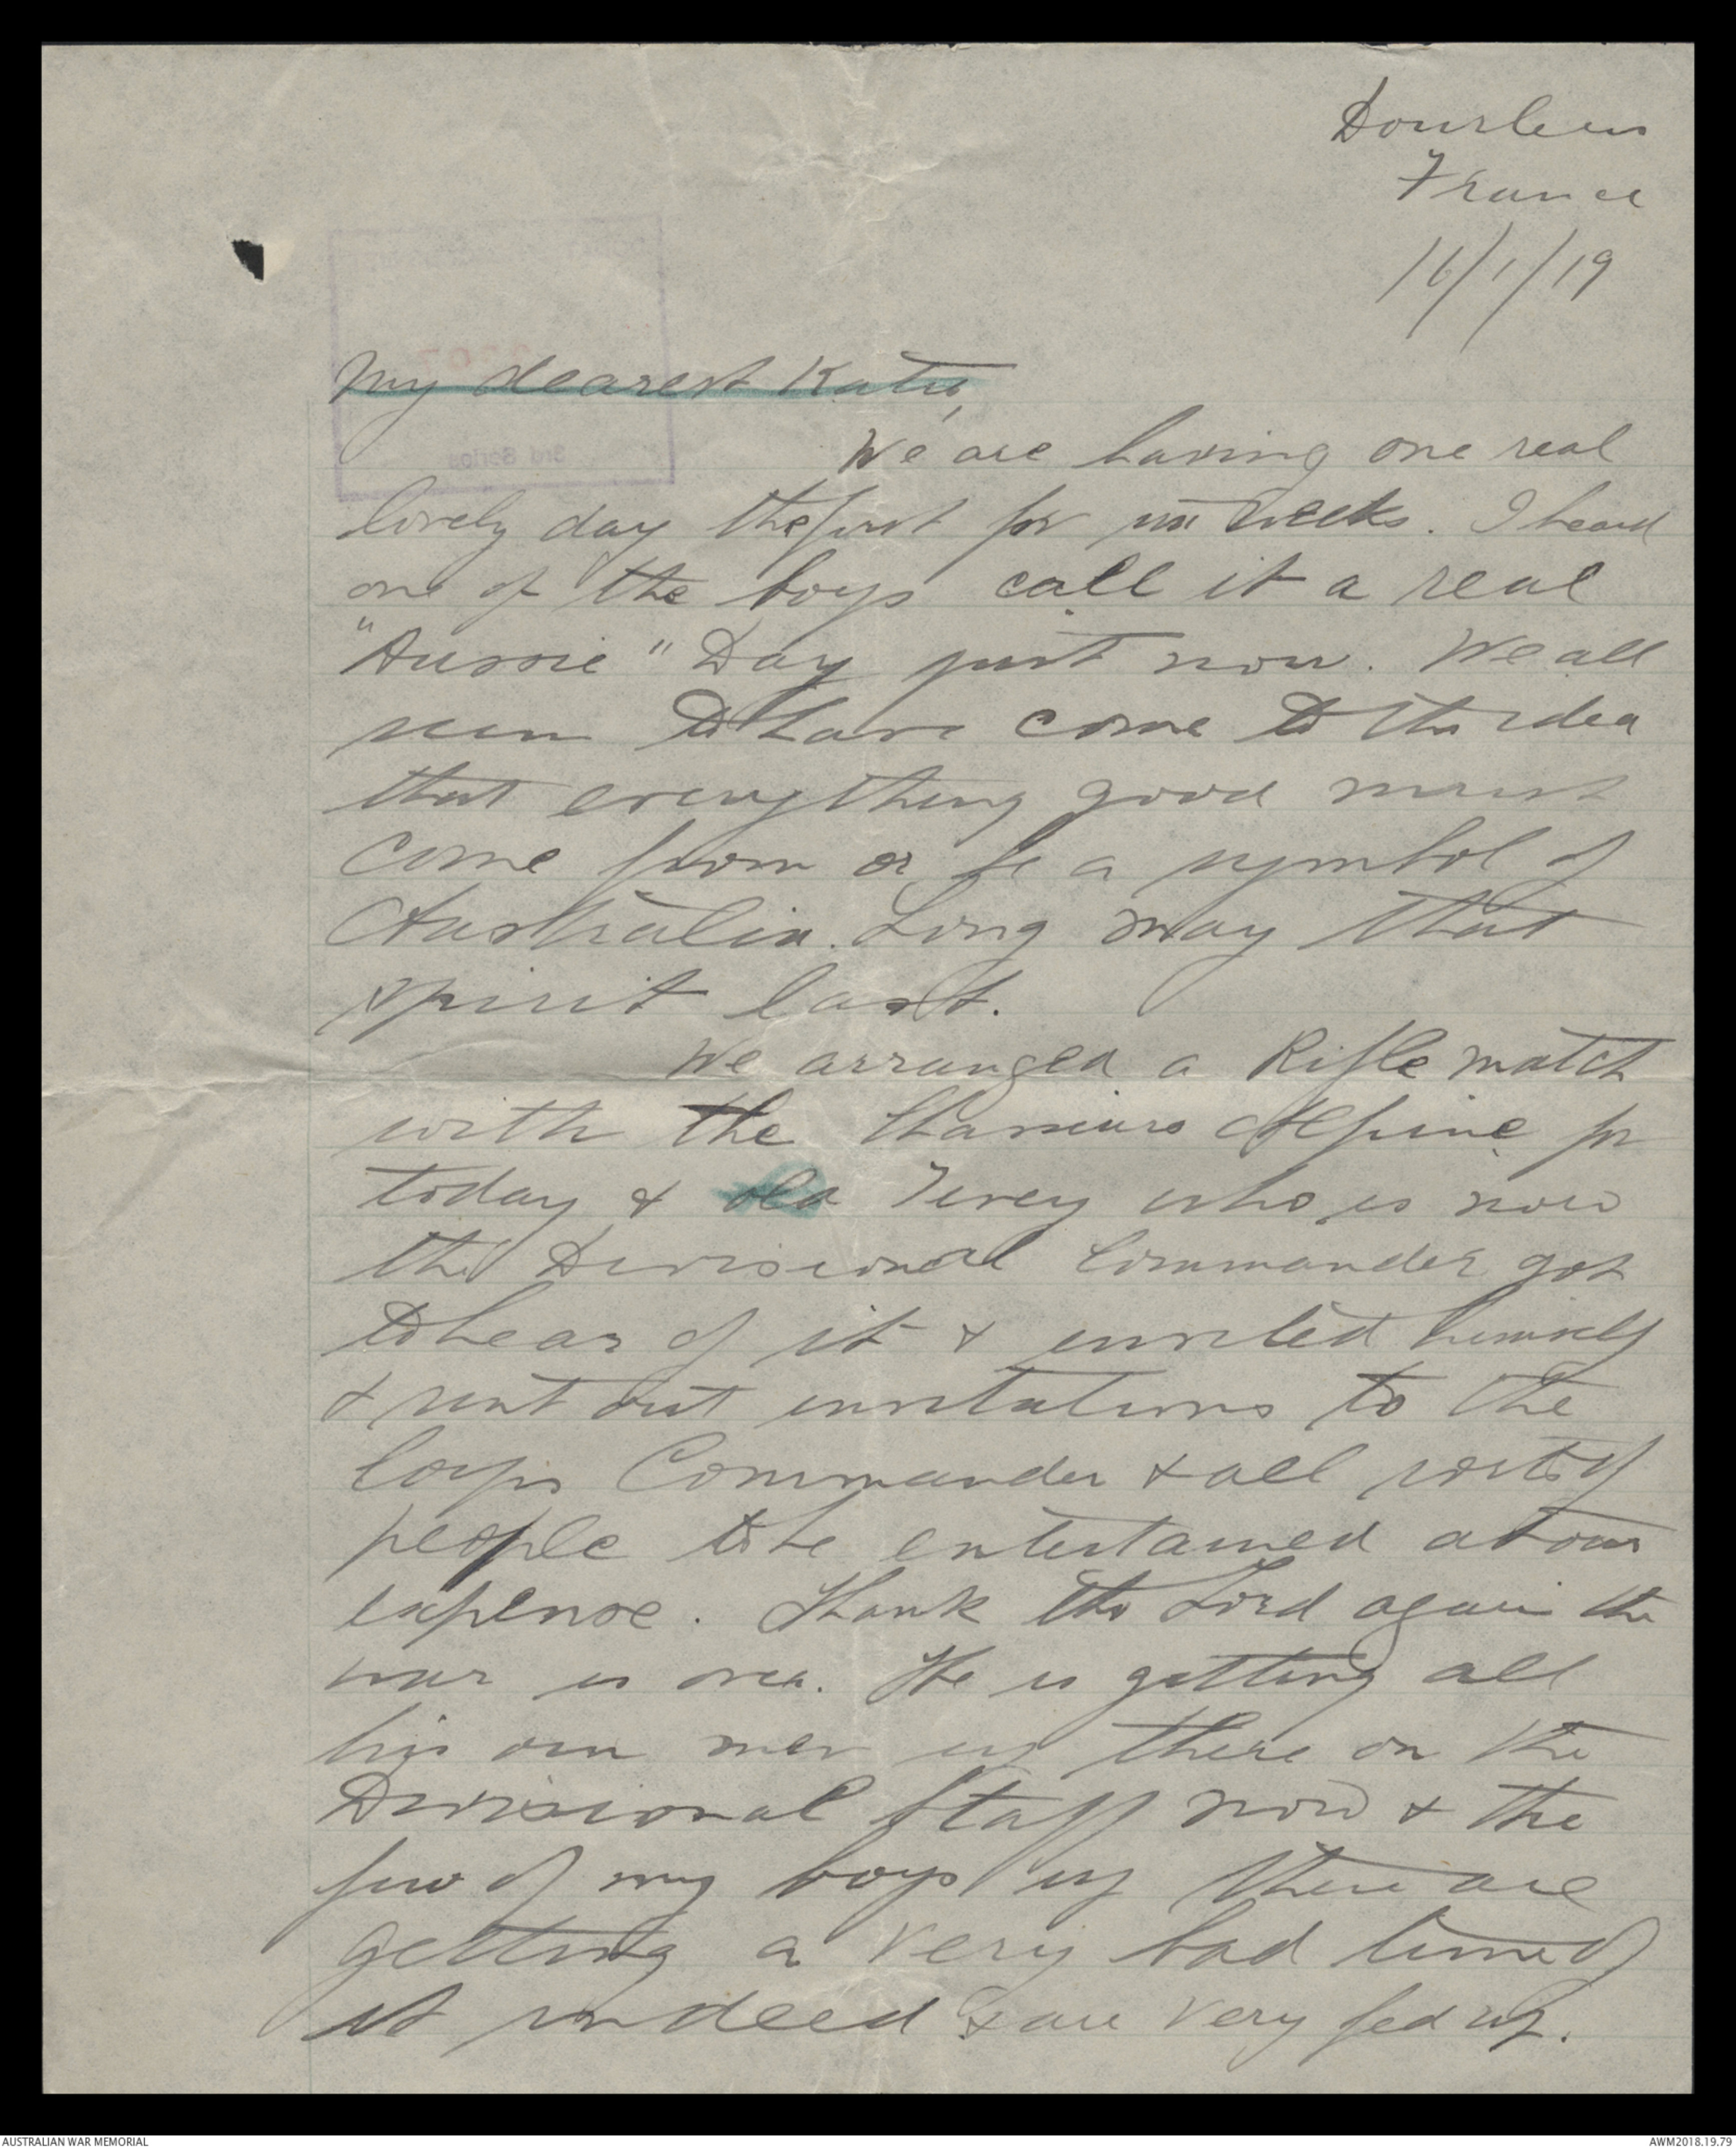 Dourleus
France
16/1/19
My dearest Katie,
We are having one real
lovely day the first for six weeks. I heard
one of the boys call it a real
"Aussie" Day just now. We all
seem to have come to the idea
that everything good must
come from or be a symbol of
Australia. Long may that
spirit last.
We arranged a Rifle match
with the Alpine for
today & old Tivey who is now
the Divisional Commander got
to hear of it & invited himself
& sent out invitations to the
Corps Commander & all sorts of
people to be entertained at our
expense. Thank the Lord again the
war is over. He is getting all
his own men up there on the
Divisional Staff now & the
few of my boys up there are
getting a very bad time of
it indeed & are very fed up.
3rd Series
AUSTRALIAN WAR MEMORIAL
AWM2018.19.79